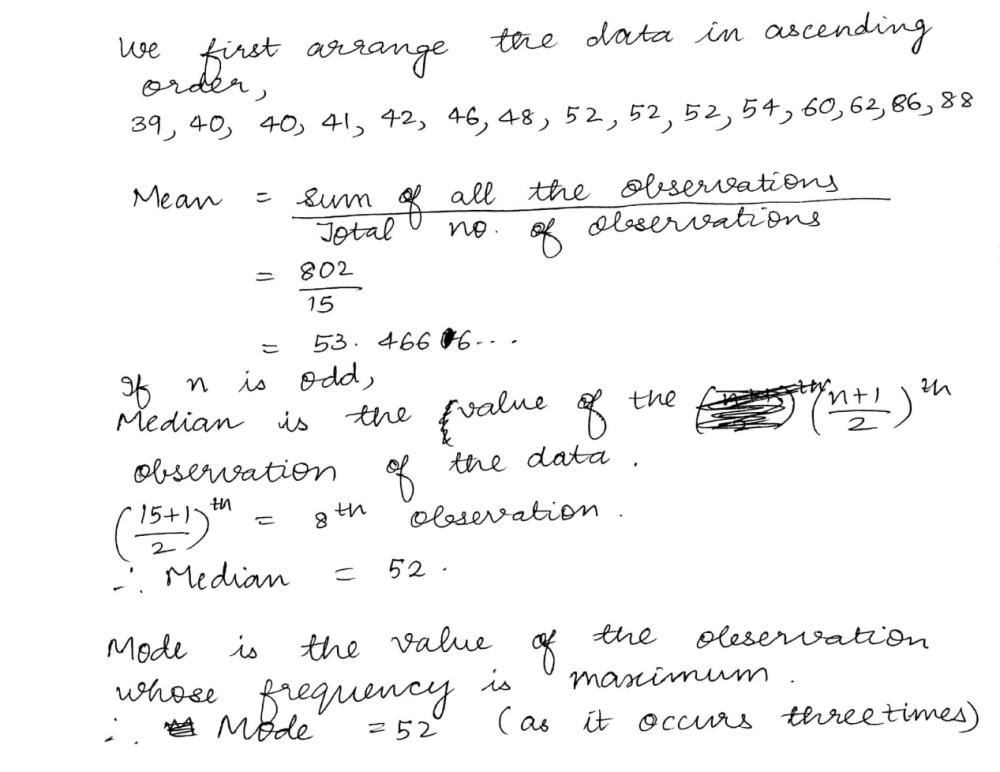 We first arrange the data in ascending
order,
39, 40, 40, 41, 42, 46, 48, 52, 52, 52, 54, 60, 62, 86, 88
Mean = Sum of all the observations
Total no. of observations
= 802
15
= 53. 466 6...
If n is odd,
Median is the value of the (n+1/2)th
observation of the data.
(15+1/2)th = 8th obsevation.
∴ Median = 52.
Mode is the value of the observation
whose frequency is maximum.
∴ Mode = 52 (as it occurs three times)